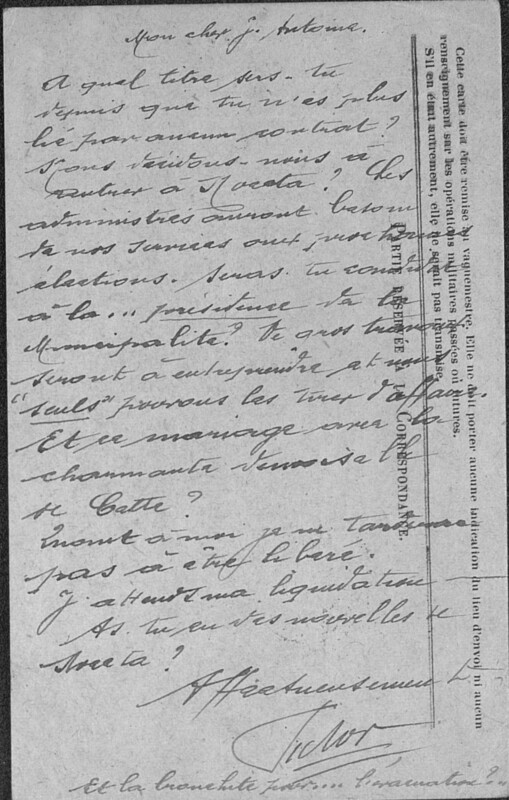 Mon cher J. Antoine.
A quel titre sers-tu
depuis que tu n'es plus
lié par aucun contrat?
Nous décidons-nous à
rentrer à Noceta? Les
administrés auront besoin
de nos services aux prochaines
élections. Seras-tu candidat
à la... présidence de la
Municipalité? De gros travaux
seront à entreprendre et nous
"seuls" pouvons les tirer d'affaire.
Et ce mariage avec la
charmante demoiselle
de Cette?
Quant à moi je ne tarderai
pas à être libéré.
J'attends ma liquidation
As-tu eu des nouvelles de
Noceta?
Affectueusement
Victor
Et la bronchite pour... l'évacuation?..
Cette carte doit être remise au vaguemestre. Elle ne doit porter aucune indication du lieu d'envoi ni aucun
renseignement sur les opérations militaires passées ou futures.
S'il en était autrement, elle ne serait pas transmise.
PARTIE RÉSERVÉE A LA CORRESPONDANCE.